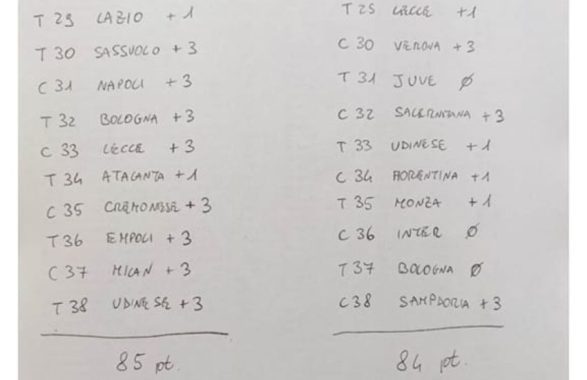 T 29 LAZIO + 1
T 30 SASSUOLO + 3
C 31 NAPOLI + 3
T 32 BOLOGNA + 3
C 33 LECCE + 3
T 34 ATALANTA + 1
C 35 CREMONESE + 3
T 36 EMPOLI + 3
C 37 MILAN + 3
T 38 UDINESE + 3
85 pt.
T 29 LECCE + 1
C 30 VERONA + 3
T 31 JUVE Ø
C 32 SALERNITANA + 3
T 33 UDINESE + 1
C 34 FIORENTINA + 1
T 35 MONZA + 1
C 36 INTER Ø
T 37 BOLOGNA Ø
C 38 SAMPDORIA + 3
84 pt.